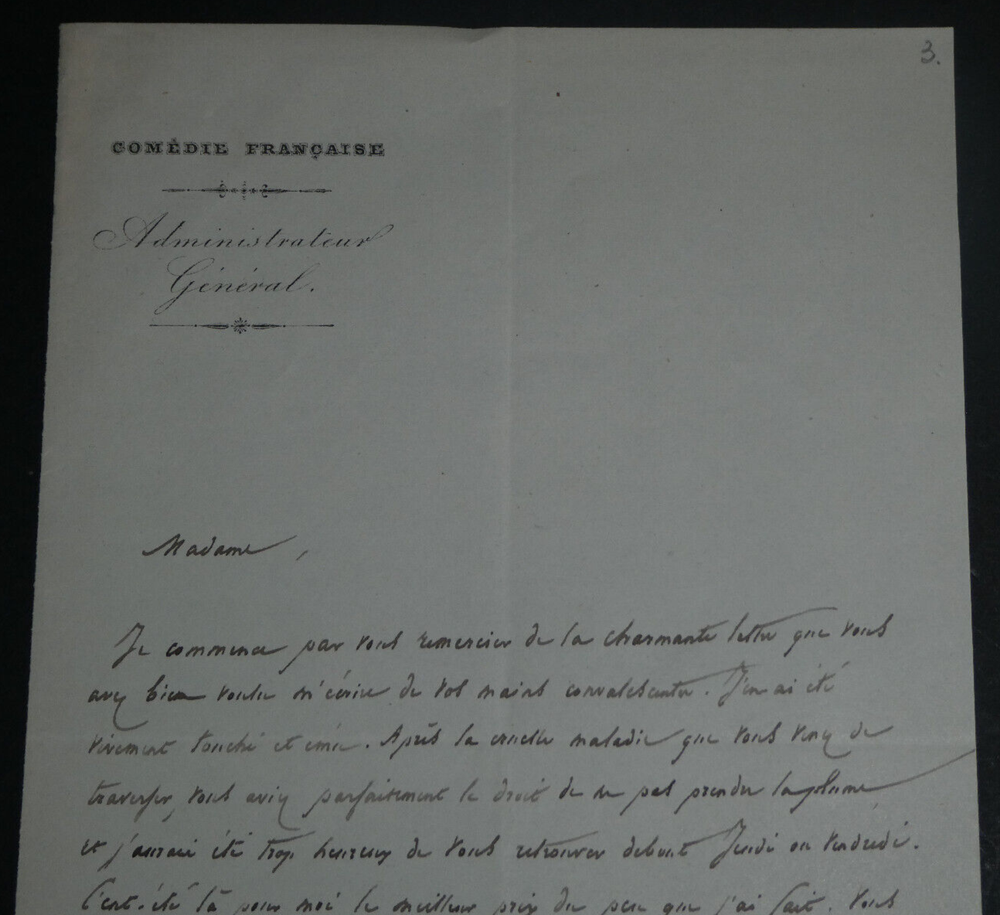 3.
COMÉDIE FRANÇAISE
Administrateur
Général.
Madame,
Je commence par vous remercier de la charmante lettre que vous
avez bien voulu m'écrire de vos mains convalescentes. J'en ai été
vivement touché et ému. Après la cruelle maladie que vous venez de
traverser, vous aviez parfaitement le droit de ne pas prendre la plume
et j'aurais été trop heureux de vous retrouver debout Jeudi ou Vendredi.
C'eut été là pour moi le meilleur prix du peu que j'ai fait. Vous